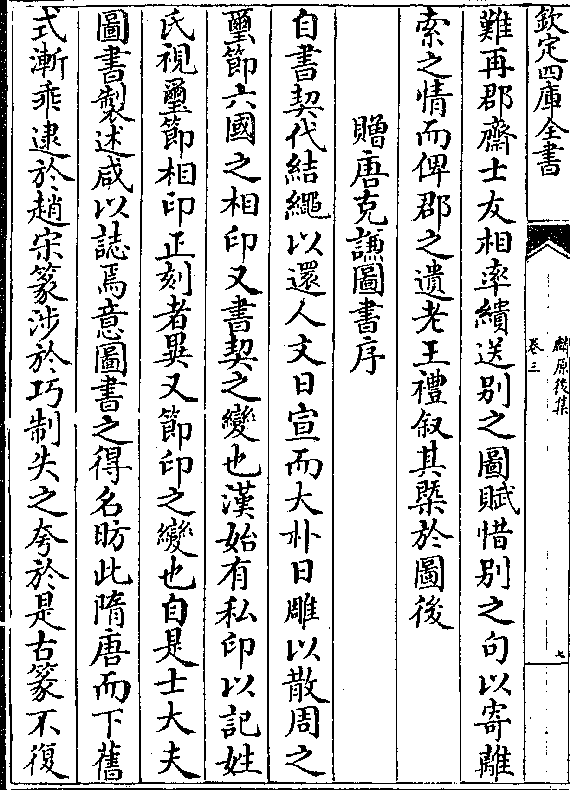 欽定四庫全書
麟原後集
卷三
七
難再郡齋士友相率繢送别之圖賦惜别之句以寄離
索之情而俾郡之遺老王禮叙其槩於圖後
贈唐克謙圖書序
自書契代結繩以還人文日宣而大朴日雕以散周之
璽節六國之相印又書契之變也漢始有私印以記姓
氏視璽節相印正刻者異又節印之變也自是士大夫
圖書製述咸以誌焉意圖書之得名昉此隋唐而下舊
式漸乖逮於趙宋篆涉於巧制失之夸於是古篆不復